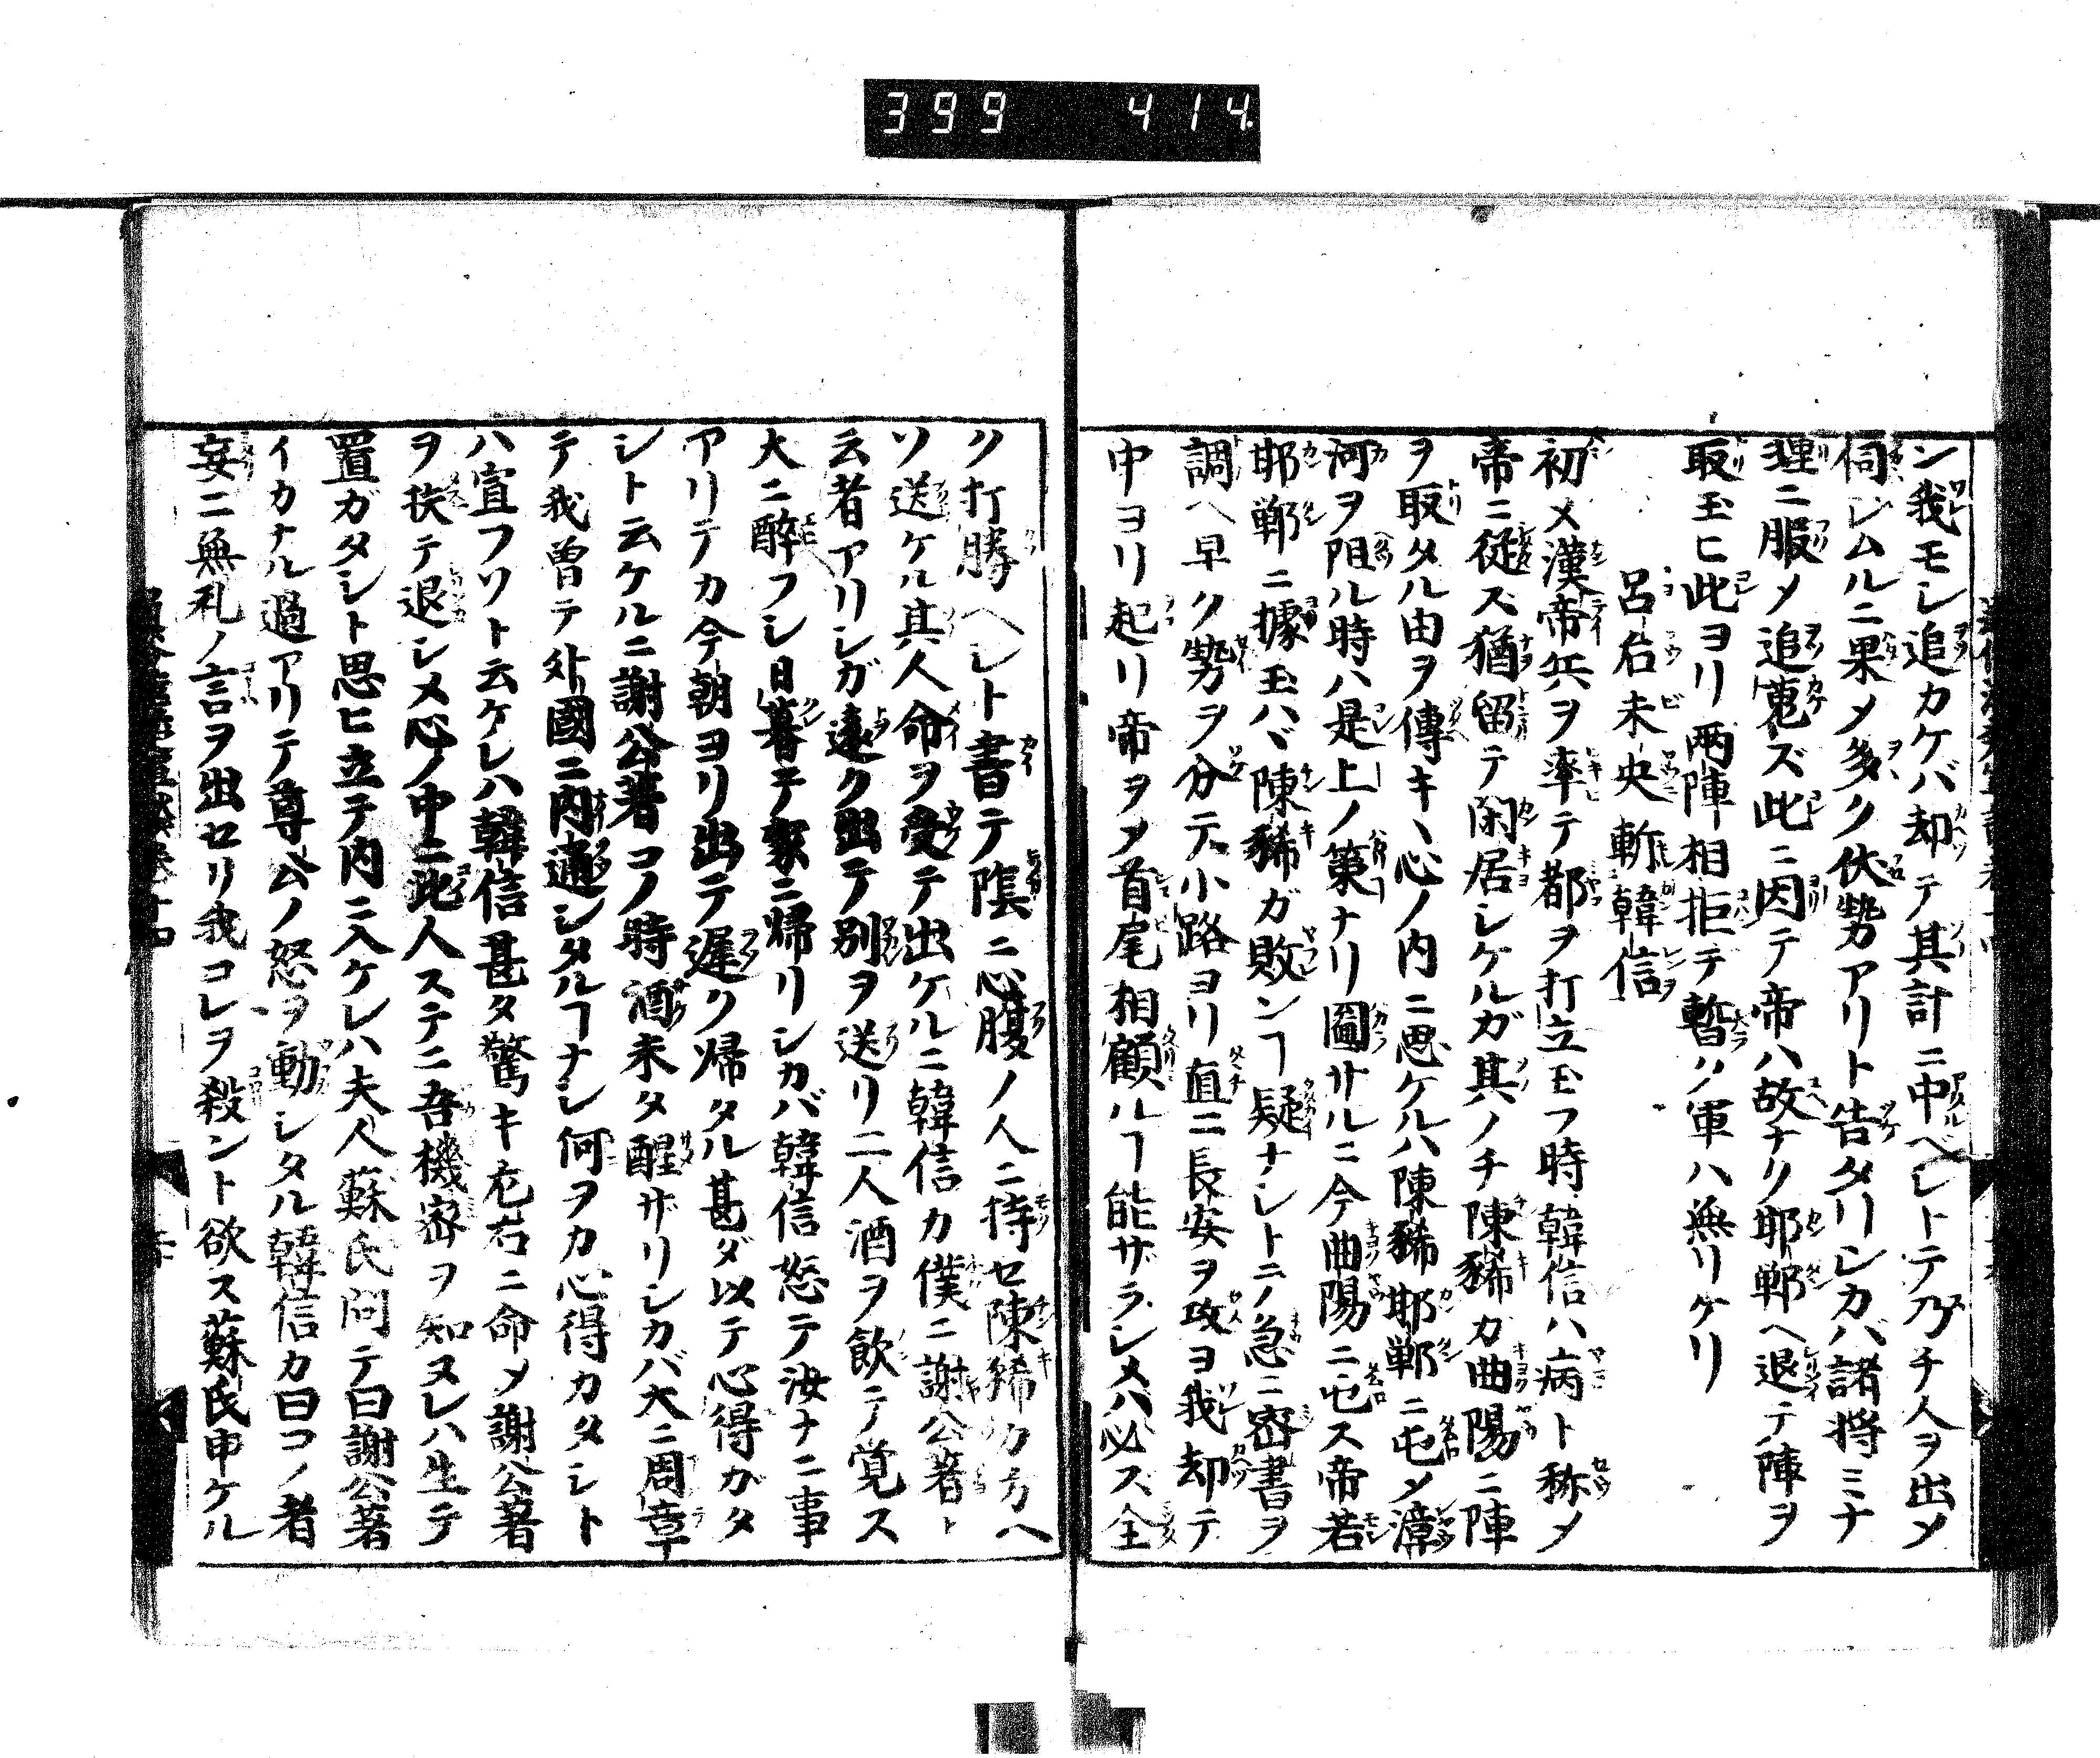 399 414
ン我モシ追カケバ却テ其計ニ中ベシトテ乃チ人ヲ出シメ
伺シムルニ果メ多ク伏勢アリト告タリシカバ諸将ミナ
理ニ服メ追蒐ズ此ニ因テ帝ハ故ナク邯鄲ヘ退テ陣ヲ
取玉ヒ此ヨリ両陣相拒テ暫ノ軍ハ無リケリ
呂后未央斬韓信
初メ漢帝兵ヲ率テ都ヲ打立玉フ時韓信ハ病ト称メ
帝ニ従ス猶留テ閑居シケルガ其ノチ陳豨カ曲陽ニ陣
ヲ取タル由ヲ傳キヽ心ノ内ニ思ケルハ陳豨邯鄲ニ屯メ漳
河ヲ阻ル時ハ是上ノ策ナリ圖サルニ今曲陽ニ屯ス帝若
邯鄲ニ據玉ハヾ陳豨ガ敗ンヿ疑ナシトテ急ニ密書ヲ
調ヘ早ク勢ヲ分テ小路ヨリ直ニ長安ヲ攻ヨ我却テ
中ヨリ起リ帝ヲメ首尾相顧ルヿ能ザラシメハ必ス全
ク打勝ヘシト書テ陰ニ心腹ノ人ニ持セ陳豨カ方ヘ
ソ送ケル其人命ヲ受テ出ケルニ韓信カ僕ニ謝公著ト
云者アリシガ遠ク出テ別ヲ送リ二人酒ヲ飲テ覚ス
大ニ醉フシ日暮テ家ニ帰リシカバ韓信怒テ汝ナニ事
アリテカ今朝ヨリ出テ遅ク帰タル甚ダ以テ心得ガタ
シト云ケルニ謝公著コノ時酒未タ醒ザリシカバ大ニ周章
テ我曽テ外國ニ内通シタルヿナシ何ヲカ心得カタシト
ハ宣フソト云ケレハ韓信甚タ驚キ左右ニ命メ謝公著
ヲ扶テ退シメ心ノ中ニ此人ステニ吾機密ヲ知ヌレハ生テ
置ガタシト思ヒ立テ内ニ入ケレハ夫人蘇氏問テ曰謝公著
イカナル過アリテ尊公ノ怒ヲ動シタル韓信カ曰コノ者
妄ニ無礼ノ言ヲ出セリ我コレヲ殺ント欲ス蘇氏申ケル